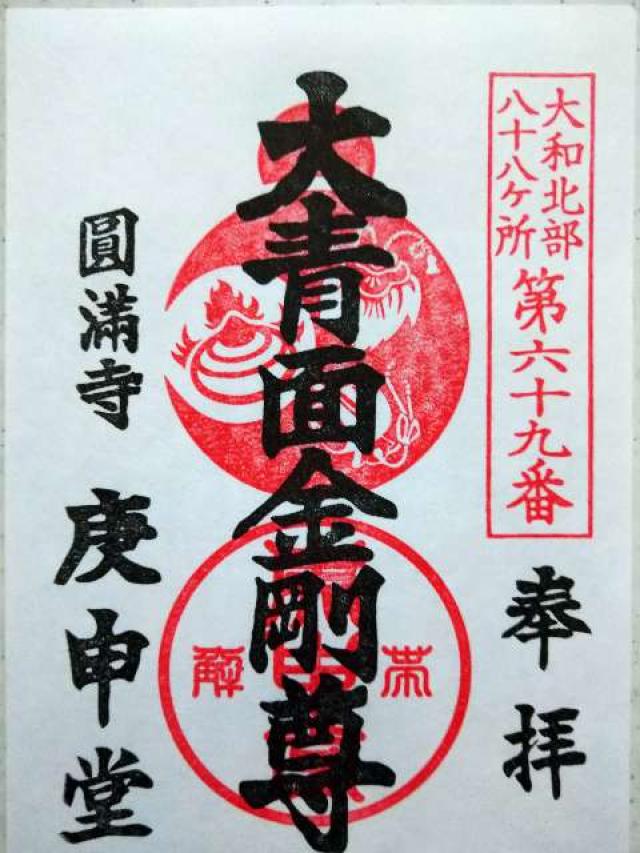 大和北部
八十八ケ所
第六十九番
奉拝
大青面金剛尊
圓満寺
庚申堂